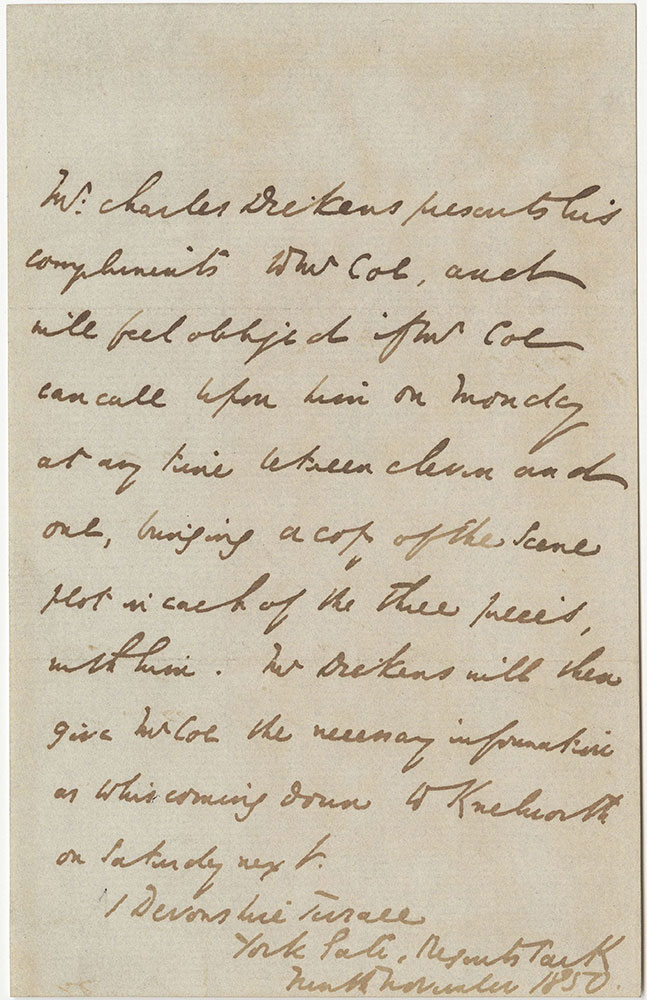 Mr. Charles Dickens presents his
compliments to Mr Coe, and
will feel obliged if Mr Coe
can call upon him on Monday
at any time between eleven and
one, bringing a copy of the Scene
plot in each of the three pieces,
with him. Mr Dickens will then
give Mr Coe the necessary information
as to his coming down to Knebworth
on Saturday next.
1 Devonshire Terrace
York Gate, Regents Park
Ninth November 1850.